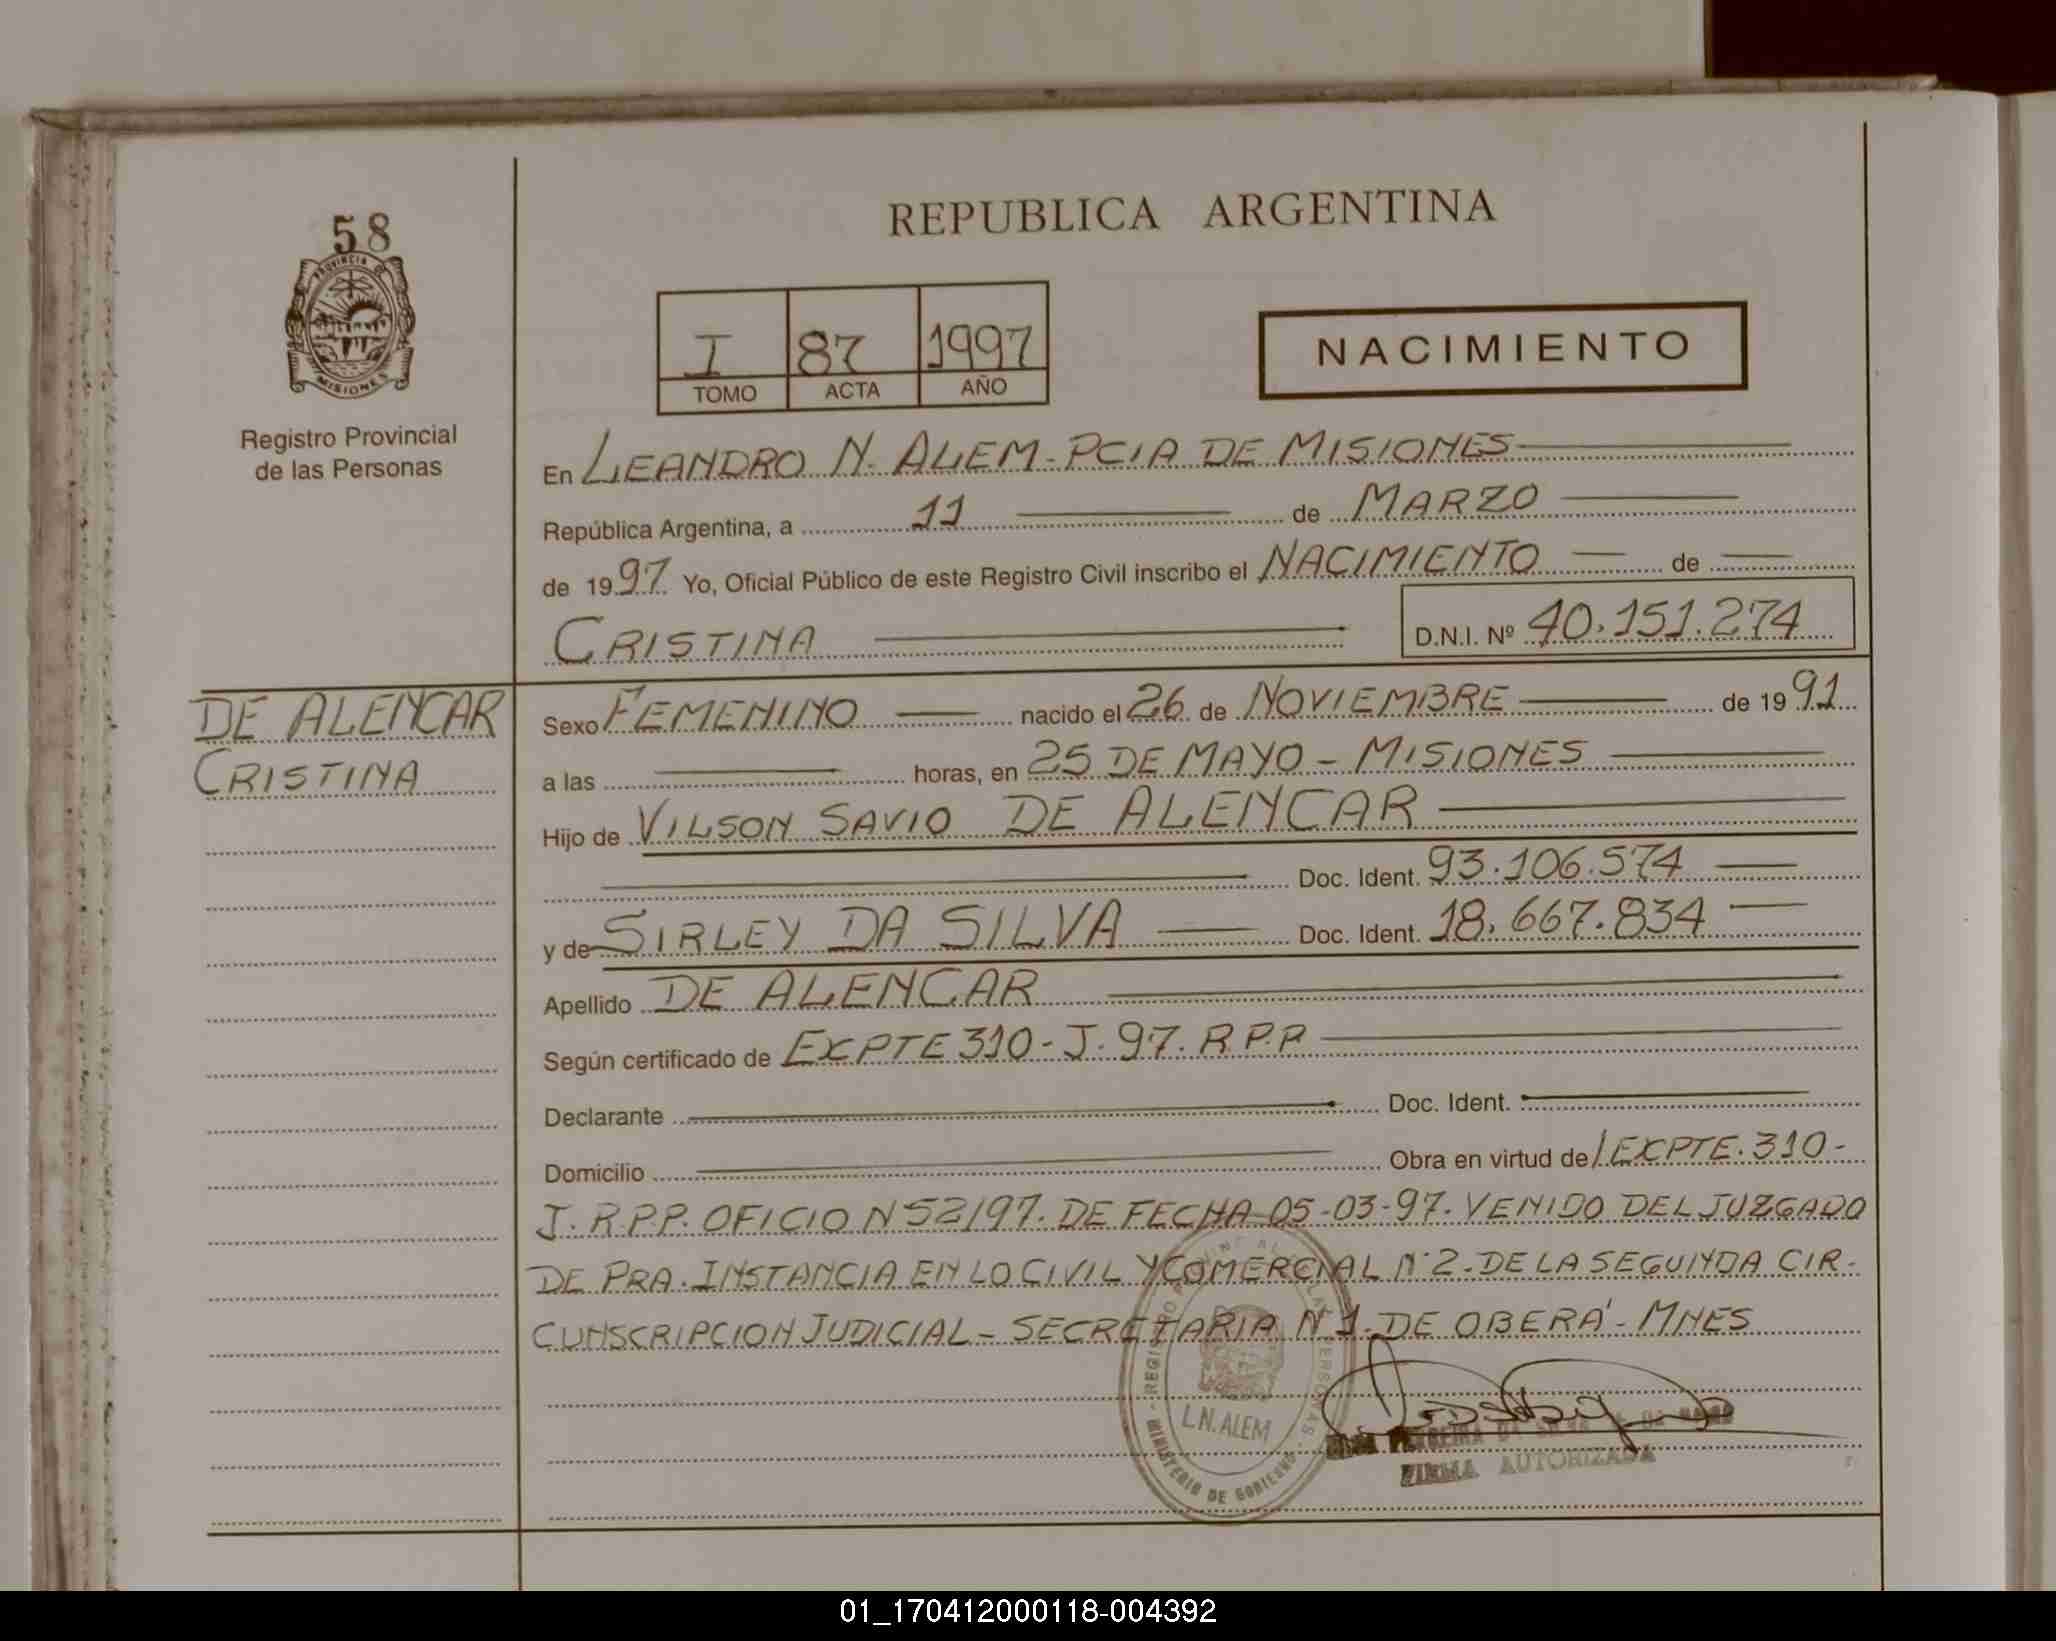 58
PROVINCIA DE
MISIONES
Registro Provincial
de las Personas
REPUBLICA ARGENTINA
I 87 1997
TOMO ACTA AÑO
NACIMIENTO
En LEANDRO N. ALEM - PCIA DE MISIONES
República Argentina, a 11 de MARZO
de 1997 Yo, Oficial Público de este Registro Civil inscribo el NACIMIENTO de
CRISTINA D.N.I. Nº 40.151.274
DE ALENCAR
CRISTINA
Sexo FEMENINO nacido el 26 de NOVIEMBRE de 1991
a las horas, en 25 DE MAYO - MISIONES
Hijo de VILSON SAVIO DE ALENCAR
Doc. Ident. 93.106.574
y de SIRLEY DA SILVA Doc. Ident. 18.667.834
Apellido DE ALENCAR
Según certificado de EXPTE 310 - J. 97. R.P.P
Declarante Doc. Ident.
Domicilio Obra en virtud de EXPTE. 310 -
J. R.P.P. OFICIO N 52/97. DE FECHA 05-03-97. VENIDO DEL JUZGADO
DE PRA. INSTANCIA EN LO CIVIL Y COMERCIAL Nº 2. DE LA SEGUNDA CIR-
CUNSCRIPCION JUDICIAL - SECRETARIA Nº 1. DE OBERÁ - MNES
L.N. ALEM
MINISTERIO DE GOBIERNO
FIRMA AUTORIZADA
01_170412000118-004392